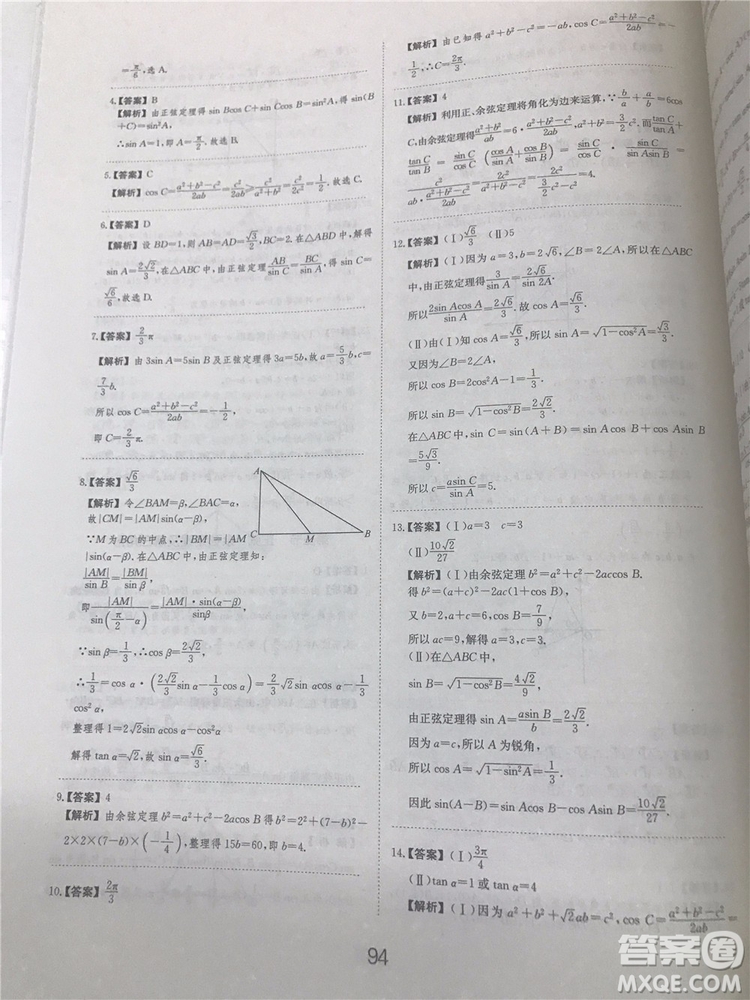 =π/6,选 A.
4.【答案】B
【解析】由正弦定理得 sin BcosC+sin CcosB=sin²A,得 sin(B
+C)=sin²A,
∴sin A=1,即 A=π/2.故选 B.
5.【答案】C
【解析】cos C=(a²+b²-c²)/2ab=c²/2ab≥c²/(a²+b²)=c²/2c²=1/2.故选 C.
6.【答案】D
【解析】设 BD=1,则 AB=AD=√3/2,BC=2.在△ABD 中,解得
sin A=2√2/3,在△ABC 中,由正弦定理AB/sin C=BC/sin A,得 sin C=
√6/6,故选 D.
7.【答案】2/3π
【解析】由 3sin A=5sin B 及正弦定理得 3a=5b,故 a=5/3b,c=
7/3b.
所以 cos C=(a²+b²-c²)/2ab=-1/2,
即 C=2/3π.
8.【答案】√6/3
【解析】令∠BAM=β,∠BAC=α,
故|CM|=|AM|sin(α-β),
∵M 为 BC 的中点,∴|BM|=|AM|
sin(α-β).在△AMB 中,由正弦定理知,
|AM|/sin B=|BM|/sin β,
即|AM|/sin(π/2-α)=|AM|·sin(α-β)/sinβ,
∵sin β=1/3,∴cos β=2√2/3,
∴1/3=cosα·(2√2/3 sin α-1/3 cos α)=2√2/3 sin αcos α-1/3
cos²α,
整理得 1=2√2sin αcos α-cos²α
解得 tan α=√2,故 sin α=√6/3.
9.【答案】4
【解析】由余弦定理 b²=a²+c²-2accos B 得 b²=2²+(7-b)²-
2×2×(7-b)×(-1/4),整理得 15b=60,即 b=4.
10.【答案】2π/3
【解析】由已知得 a²+b²-c²=-ab,cos C=(a²+b²-c²)/2ab=-
1/2,∴C=2π/3.
11.【答案】4
【解析】利用正、余弦定理将角化为边来运算,∵b/a+a/b=6cos
C,由余弦定理得(a²+b²)/ab=6·(a²+b²-c²)/2ab,a²+b²=3/2c².而tan C/tan A+
tan C/tan B=sin C/cos C(cos A/sin A+cos B/sin B)=sin C/cos C·sin C/sin Asin B=
c²/(ab·(a²+b²-c²)/2ab)=2c²/(3/2c²-c²)=4.
12.【答案】(Ⅰ)√6/3 (Ⅱ)5
【解析】(Ⅰ)因为 a=3,b=2√6,∠B=2∠A,所以在
△ABC 中,由正弦定理得3/sin A=2√6/sin 2A.
所以2sin Acos A/sin A=2√6/3.故 cos A=√6/3.
(Ⅱ)由(Ⅰ)知 cos A=√6/3,所以 sin A=√(1-cos²A)=√3/3.
又因为∠B=2∠A,
所以 cos B=2cos²A-1=1/3.
所以 sin B=√(1-cos²B)=2√2/3.
在△ABC 中,sin C=sin(A+B)=sin Acos B+cos Asin B=
5√3/9.
所以 c=asin C/sin A=5.
13.【答案】(Ⅰ)a=3 c=3
(Ⅱ)10√2/27
【解析】(Ⅰ)由余弦定理 b²=a²+c²-2accos B.
得 b²=(a+c)²-2ac(1+cos B),
又 b=2,a+c=6,cos B=7/9,
所以 ac=9,解得 a=3,c=3.
(Ⅱ)在△ABC 中,
sin B=√(1-cos²B)=4√2/9,
由正弦定理得 sin A=asin B/b=2√2/3.
因为 a=c,所以 A 为锐角,
所以 cos A=√(1-sin²A)=1/3.
因此 sin(A-B)=sin Acos B-cos Asin B=10√2/27.
14.【答案】(Ⅰ)3π/4
(Ⅱ)tan α=1 或 tan α=4
【解析】(Ⅰ)因为 a²+b²+√2ab=c²,cos C=(a²+b²-c²)/2ab=
A
C
M
B
94
答案圈
MXQE.COM